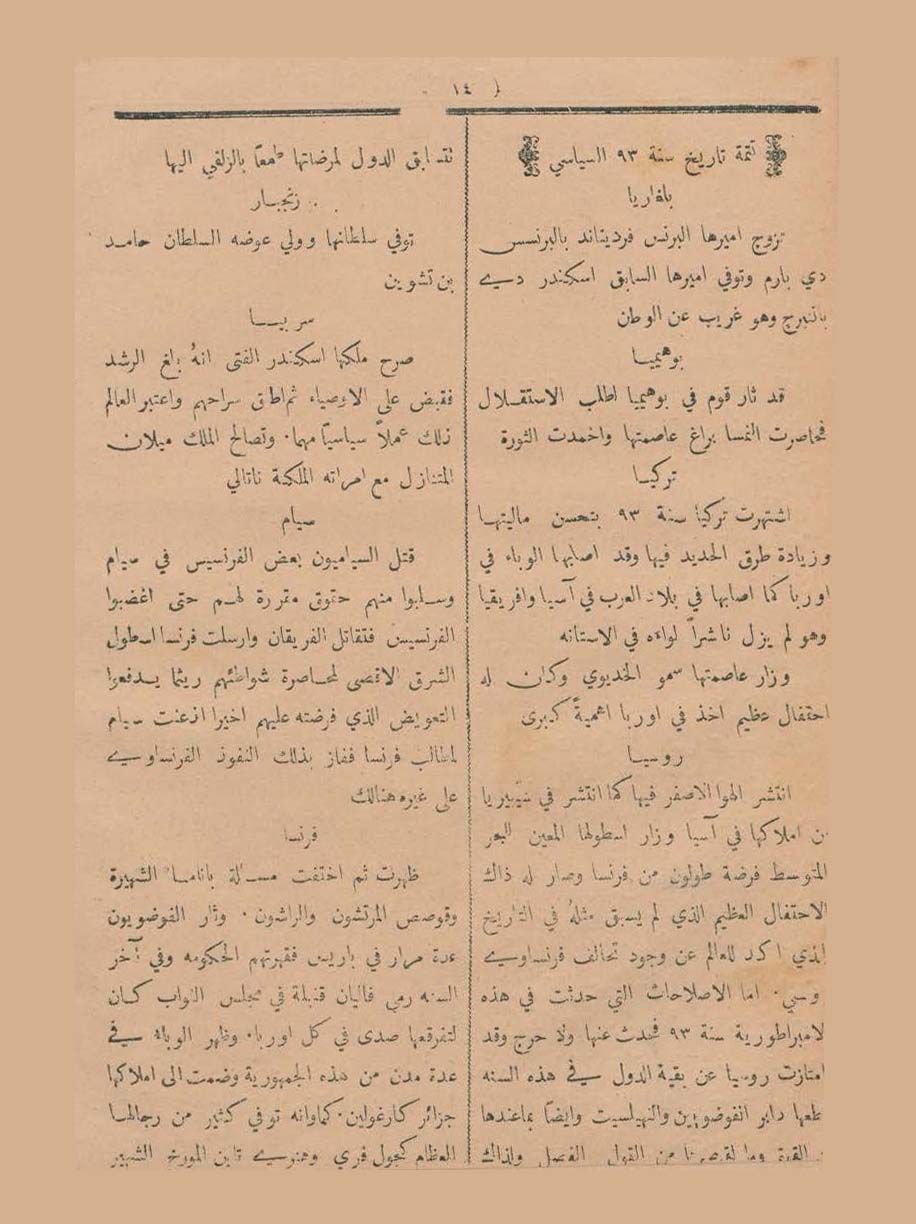 ١٤
تتمة تاريخ سنة ٩٣ السياسي
بلغاريا
تزوج اميرها البرنس فرديناند بالبرنسس
دي بارم وتوفي اميرها السابق اسكندر دي
باتنبرج وهو غريب عن الوطن
بوهيميا
قد ثار قوم في بوهيميا لطلب الاستقلال
فحاصرت النمسا براغ عاصمتها واخمدت الثورة
تركيا
اشتهرت تركيا سنة ٩٣ بتحسن ماليتها
وزيادة طرق الحديد فيها وقد اصابها الوباء في
اوربا كما اصابها في بلاد العرب في آسيا وافريقيا
وهو لم يزل ناشراً لواءه في الاستانه
وزار عاصمتها سمو الخديوي وكان له
احتفال عظيم اخذ في اوربا اهمية كبرى
روسيا
انتشر الهوا الاصفر فيها كما انتشر في سيبيريا
من املاكها في آسيا وزار اسطولها المعين للبحر
المتوسط فرضة طولون من فرنسا وصار له ذاك
الاحتفال العظيم الذي لم يسبق مثله في التاريخ
الذي اكد للعالم عن وجود تحالف فرنساوي
وسي. اما الاصلاحات التي حدثت في هذه
لامبراطورية سنة ٩٣ فحدث عنها ولا حرج وقد
امتازت روسيا عن بقية الدول في هذه السنه
طعها دابر الفوضويين والنهيلست وايضاً بماعندها
من القوة وما من القول الفصل ولذلك
تتسابق الدول لمرضاتها طمعاً بالزلفي اليها
زنجبار
توفي سلطانها وولي عوضه السلطان حامد
بن تشوين
سربيا
صرح ملكها اسكندر الفتى انهُ بلغ الرشد
فقبض على الاوصياء ثم اطلق سراحهم واعتبر العالم
ذلك عملاً سياسياً مهما. وتصالح الملك ميلان
المتنازل مع امراته الملكة ناتالي
سيام
قتل السياميون بعض الفرنسيس في سيام
وسلبوا منهم حقوق مقررة لهم حتى اغضبوا
الفرنسيس فتقاتل الفريقان وارسلت فرنسا اسطول
الشرق الاقصى لمحاصرة شواطئهم ريثما يدفعوا
التعويض الذي فرضته عليهم اخيرا اذعنت سيام
لمطالب فرنسا ففاز بذلك النفوذ الفرنساوي
على غيره هنالك
فرنسا
ظهرت ثم اختفت مسألة باناما الشهيرة
وقوصص المرتشون والراشون. وثار الفوضويون
عدة مرار في باريس فقهرتهم الحكومه وفي آخر
السنه رمى فاليان قنبلة في مجلس النواب كان
لتفرقعها صدى في كل اوربا. وظهر الوباء في
عدة مدن من هذه الجمهورية وضمت الى املاكها
جزائر كارغولين. كما وانه توفي كثير من رجالها
العظام كجول فري وهنري تاين المورخ الشهير